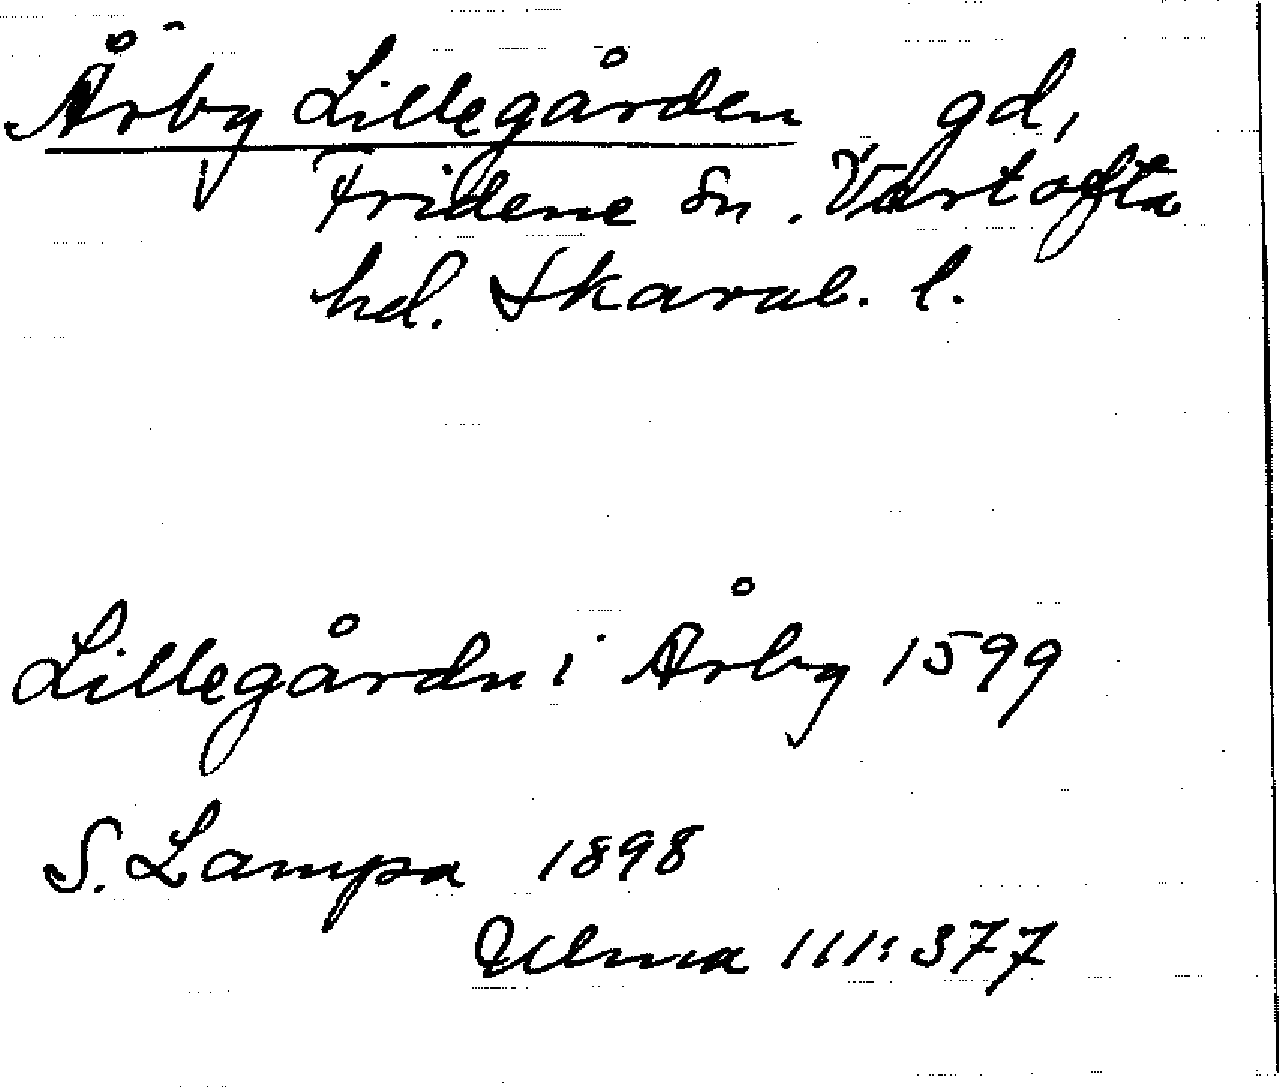 Årby Lillegården gd,
Fridene Sn. Vartofta
hd. Skarab. l.
Lillegårdn i Årby 1599
S. Lampa 1898
Ulma 111:377